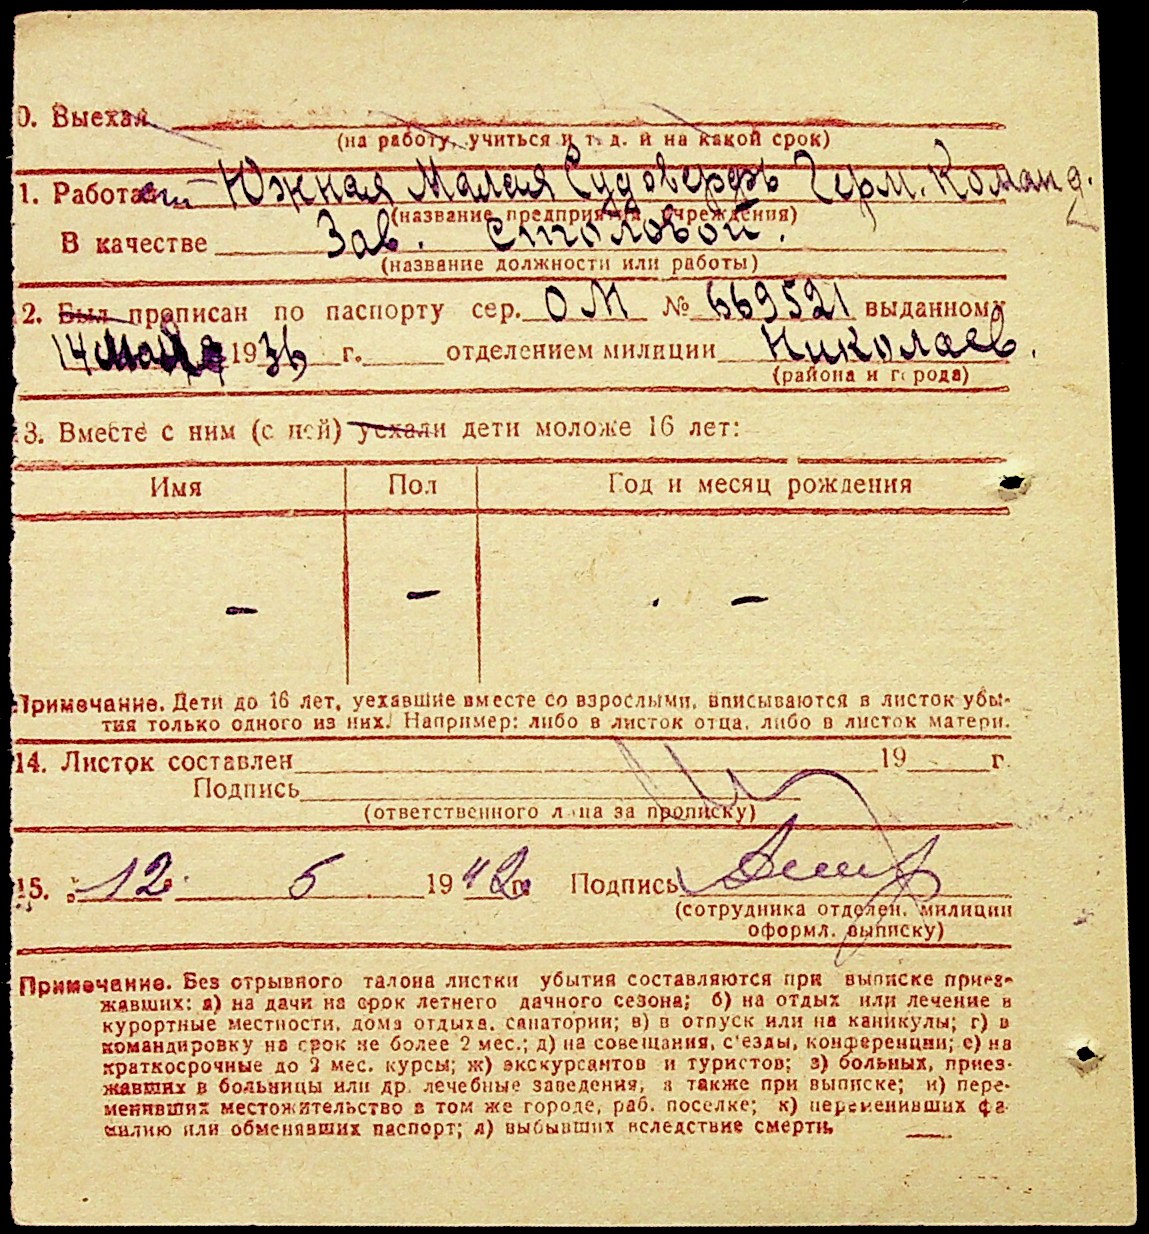 0. Выехал
(на работу, учиться и т. д. и на какой срок)
1. Работает – Южная Малая Судоверфь Герм. Команд.
(название предприятия, учреждения)
В качестве Зав. столовой.
(название должности или работы)
2. Был прописан по паспорту сер. ОМ № 669521 выданному
14 мая 1936 г. отделением милиции Николаев.
(района и города)
3. Вместе с ним (с ней) уехали дети моложе 16 лет:
Имя Пол Год и месяц рождения
– – –
Примечание. Дети до 16 лет, уехавшие вместе со взрослыми, вписываются в листок убы-
тия только одного из них. Например: либо в листок отца, либо в листок матери.
14. Листок составлен 19 г.
Подпись
(ответственного лица за прописку)
15. „12“ 5 1942 г. Подпись
(сотрудника отделен. милиции
оформл. выписку)
Примечание. Без отрывного талона листки убытия составляются при выписке приез-
жавших: а) на дачи на срок летнего дачного сезона; б) на отдых или лечение в
курортные местности, дома отдыха, санатории; в) в отпуск или на каникулы; г) в
командировку на срок не более 2 мес.; д) на совещания, с'езды, конференции; е) на
краткосрочные до 2 мес. курсы; ж) экскурсантов и туристов; з) больных, приез-
жавших в больницы или др. лечебные заведения, а также при выписке; и) пере-
менивших местожительство в том же городе, раб. поселке; к) переменивших фа-
милию или обменявших паспорт; л) выбывших вследствие смерти.